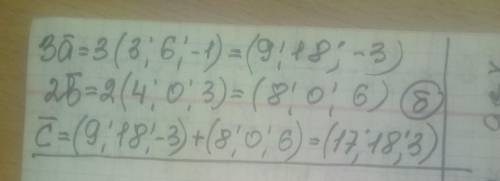 3a̅=3(3; 6; -1)=(9; 18; -3)
2b̅=2(4; 0; 3)=(8; 0; 6) б
c̅=(9; 18; -3)+(8; 0; 6)=(17; 18; 3)